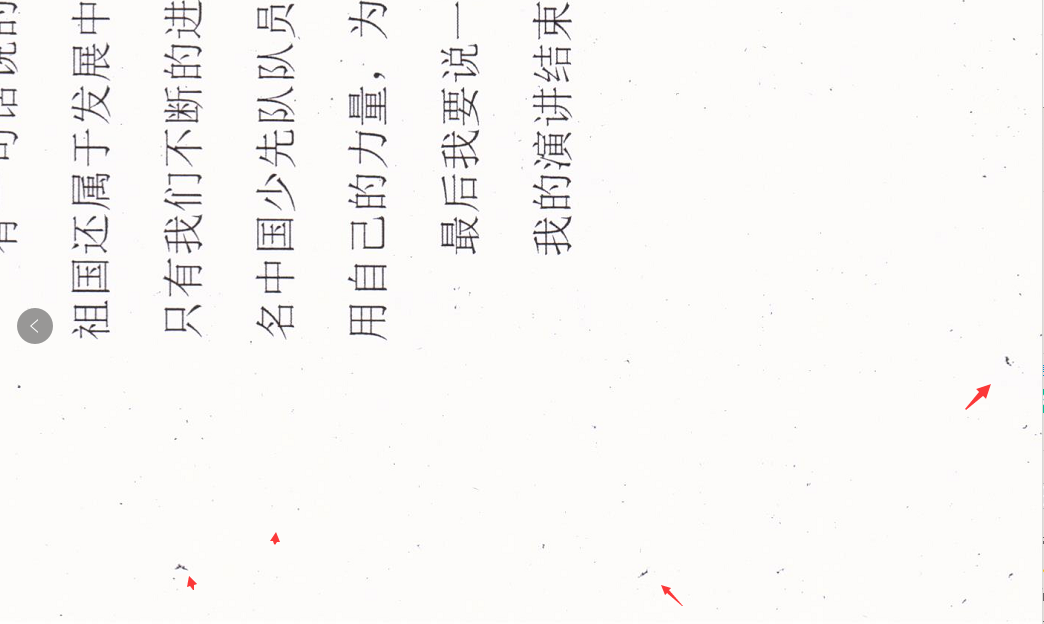 有 句话说的
祖国还属于发展中
只有我们不断的进
名中国少先队队员
用自己的力量，为
最后我要说一
我的演讲结束